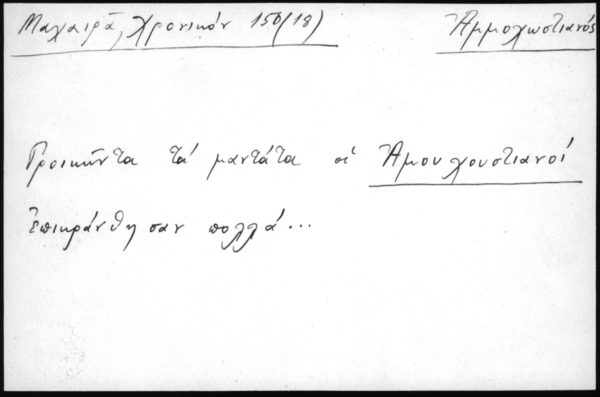 Μαχαιρᾶ, Χρονικόν 150(18) Ἀμμοχωστιανός
Γροικῶντα τά μαντάτα οἱ Ἀμουχουστιανοί
ἐπικράνθησαν πολλά...